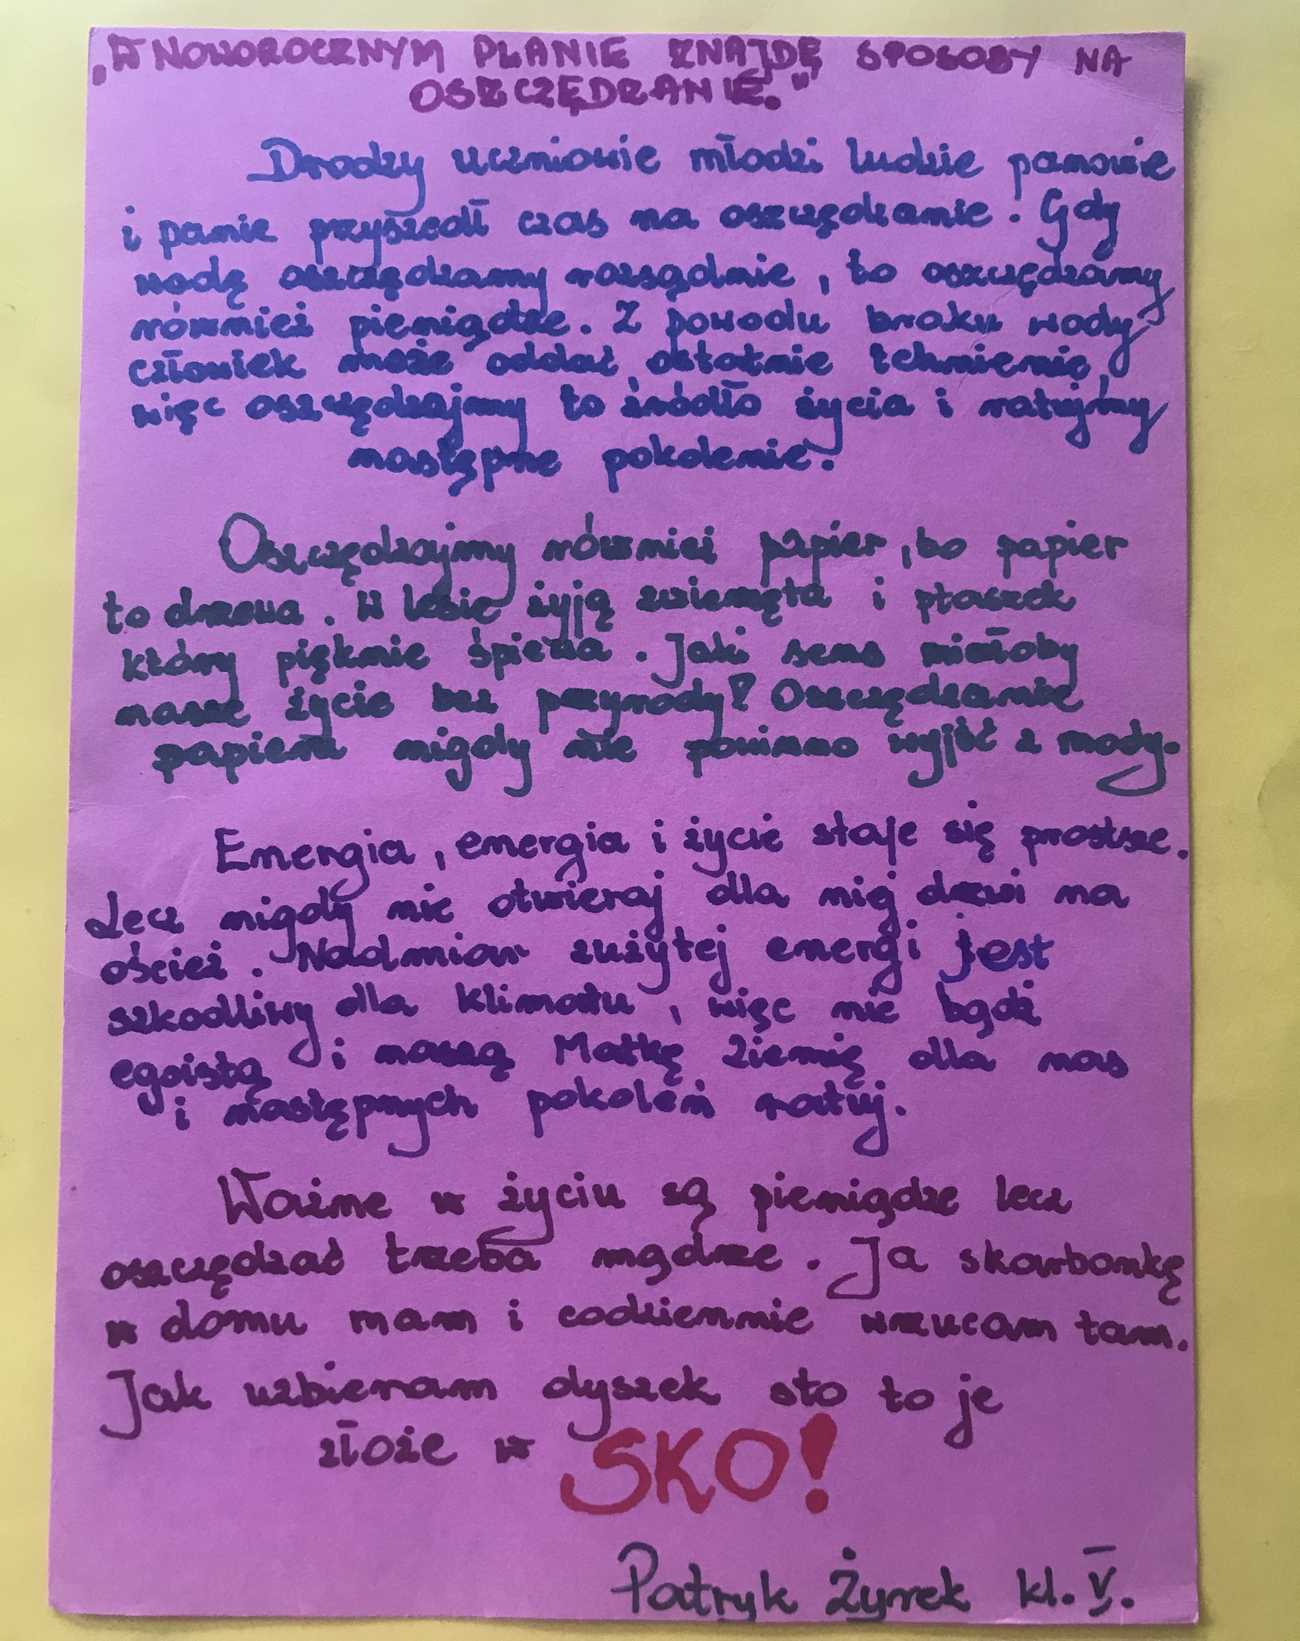 „W NOWOROCZNYM PLANIE ZNAJDĘ SPOSOBY NA
OSZCZĘDZANIE."
Drodzy uczniowie młodzi ludzie panowie
i panie przyszedł czas na oszczędzanie. Gdy
wodę oszczędzamy rozsądnie, to oszczędzamy
również pieniądze. Z powodu braku wody
człowiek może oddać ostatnie tchnienie,
więc oszczędzajmy to źródło życia i ratujmy
następne pokolenie.
Oszczędzajmy również papier, bo papier
to drzewa. W lesie żyją zwierzęta i ptaszek
który pięknie śpiewa. Jaki sens miałoby
nasze życie bez przyrody? Oszczędzanie
papieru nigdy nie powinno wyjść z mody.
Energia, energia i życie staje się prostsze.
Lecz nigdy nie otwieraj dla niej drzwi na
oścież. Nadmiar zużytej energi jest
szkodliwy dla klimatu, więc nie bądź
egoistą i naszą Matkę Ziemię dla nas
i następnych pokoleń ratuj.
Ważne w życiu są pieniądze lecz
oszczędzać trzeba mądrze. Ja skarbonkę
w domu mam i codziennie wrzucam tam.
Jak uzbieram dyszek sto to je
złoże w SKO!
Patryk Żyrek kl. V.